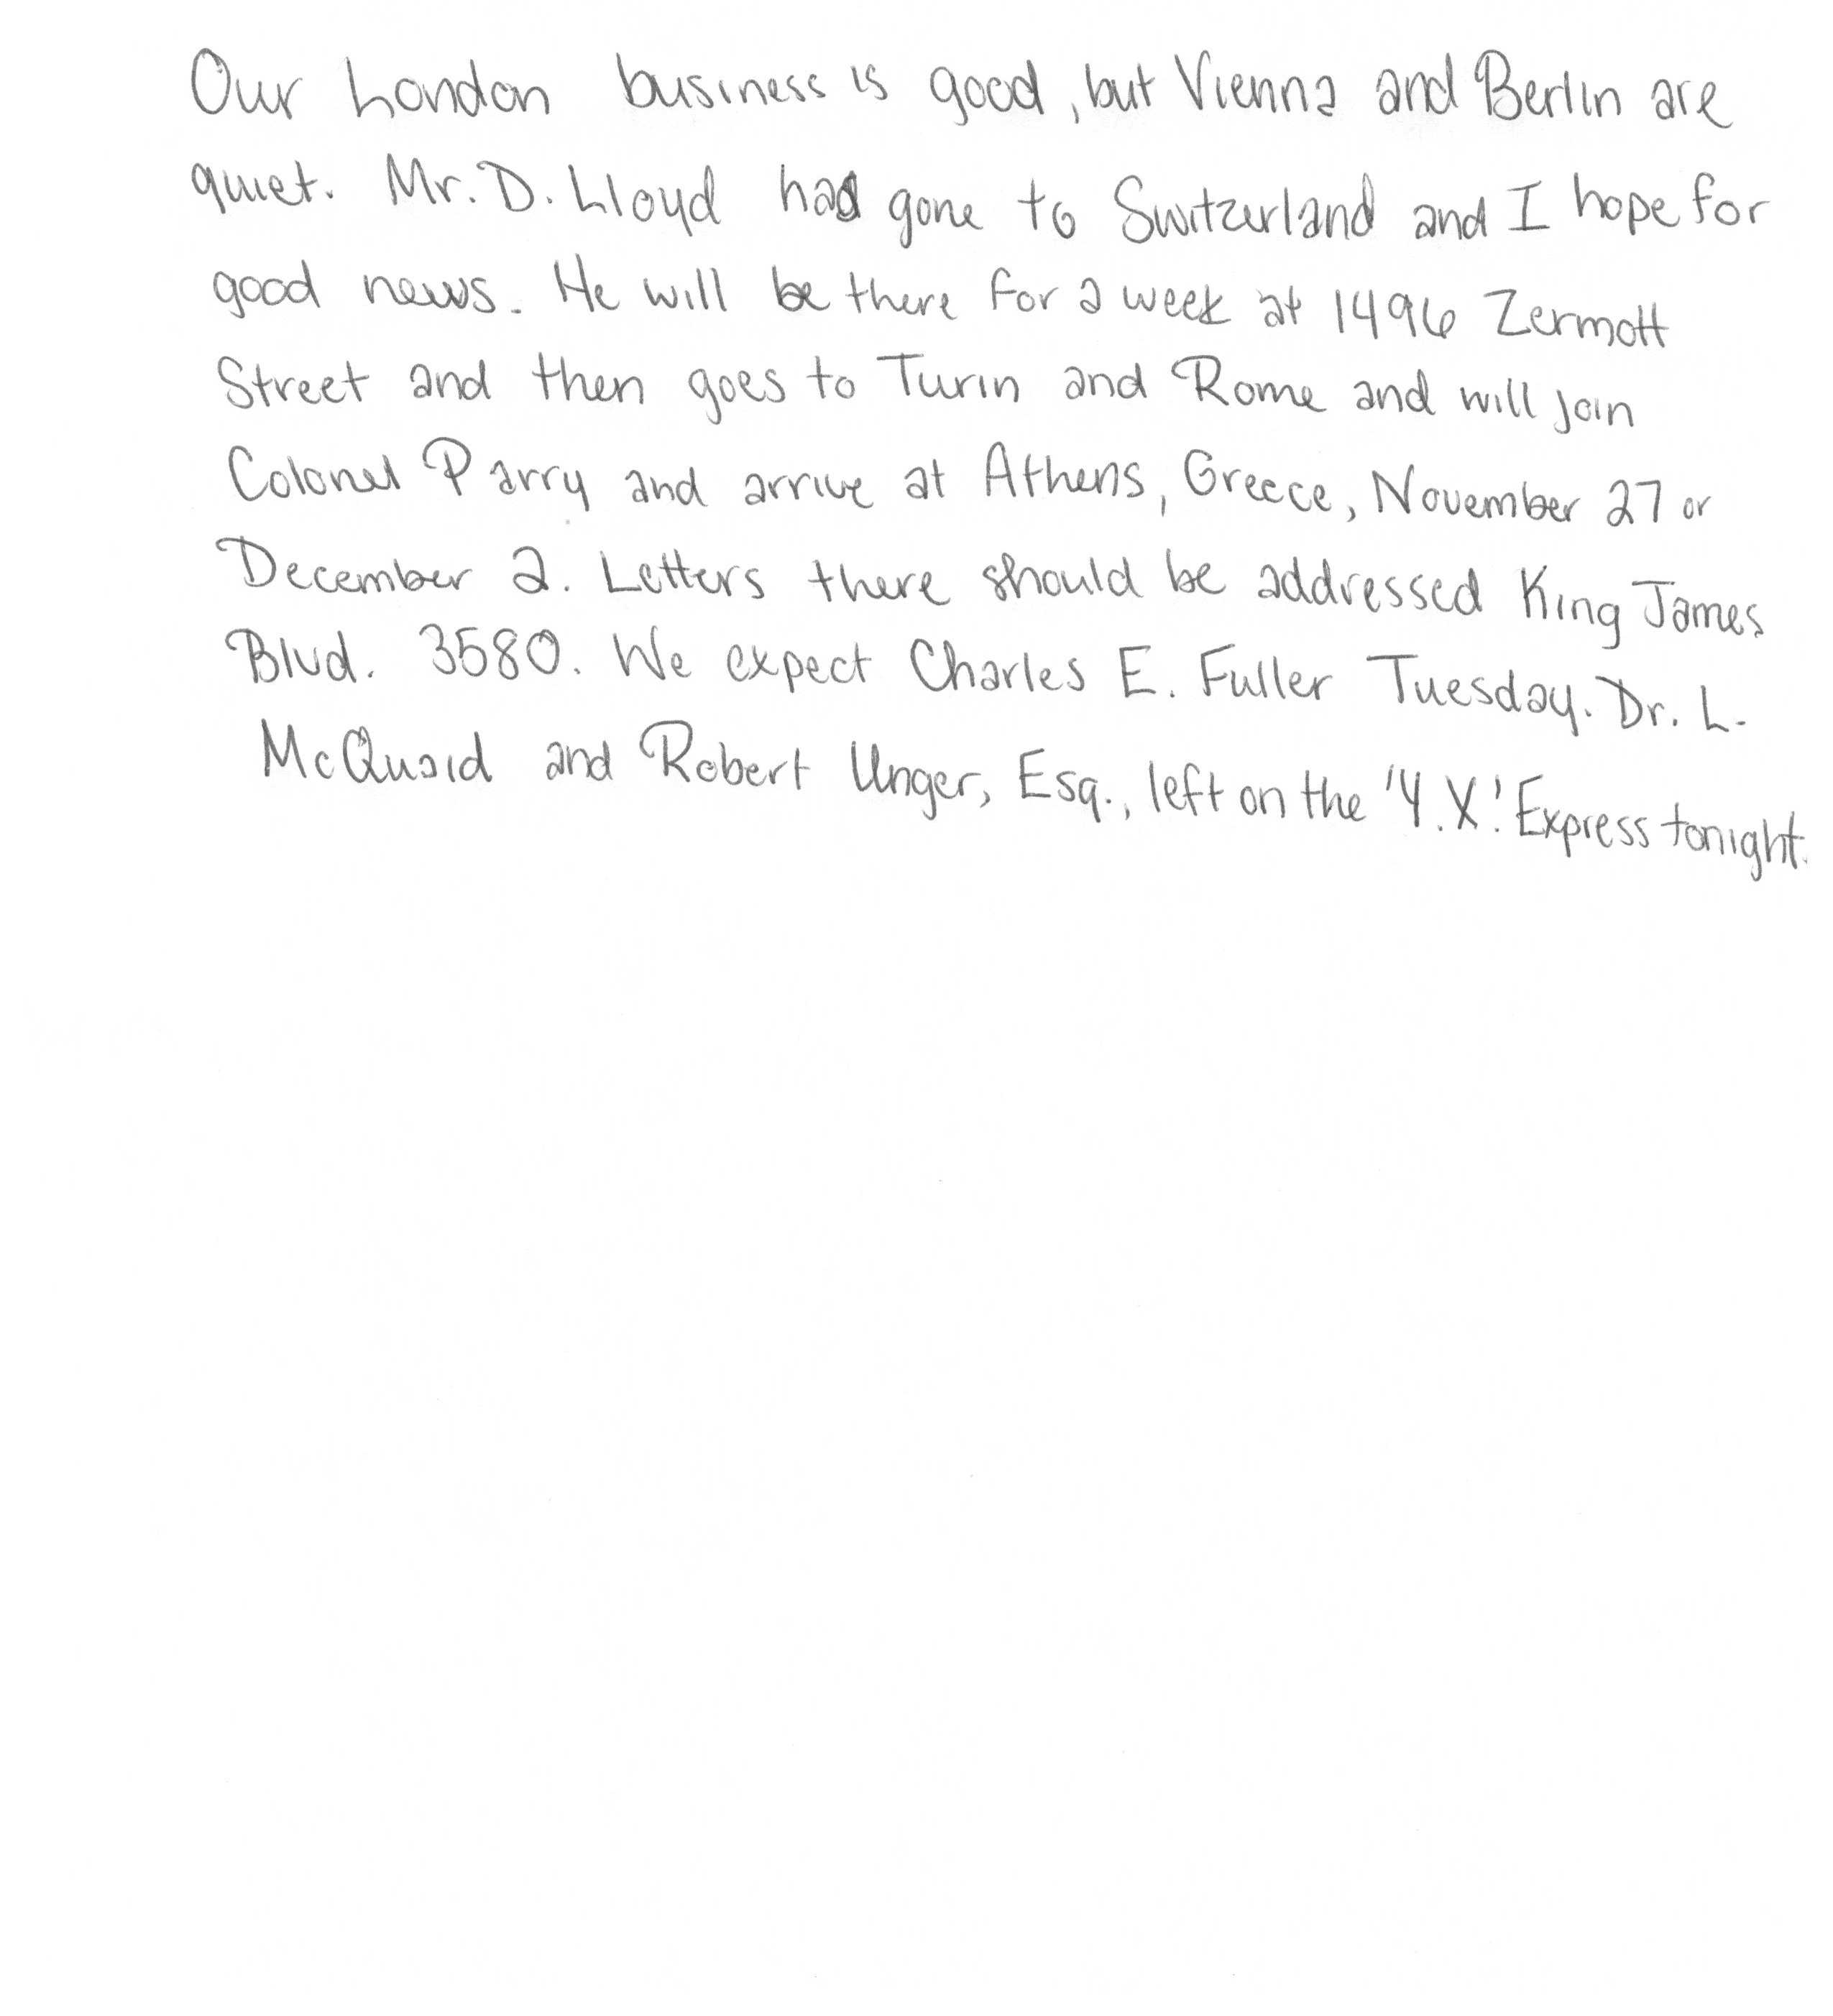 Our London business is good, but Vienna and Berlin are
quiet. Mr. D. Lloyd had gone to Switzerland and I hope for
good news. He will be there for a week at 1496 Zermott
Street and then goes to Turin and Rome and will join
Colonel Parry and arrive at Athens, Greece, November 27 or
December 2. Letters there should be addressed King James
Blvd. 3580. We expect Charles E. Fuller Tuesday. Dr. L.
McQuaid and Robert Unger, Esq., left on the 'Y.X.' Express tonight.